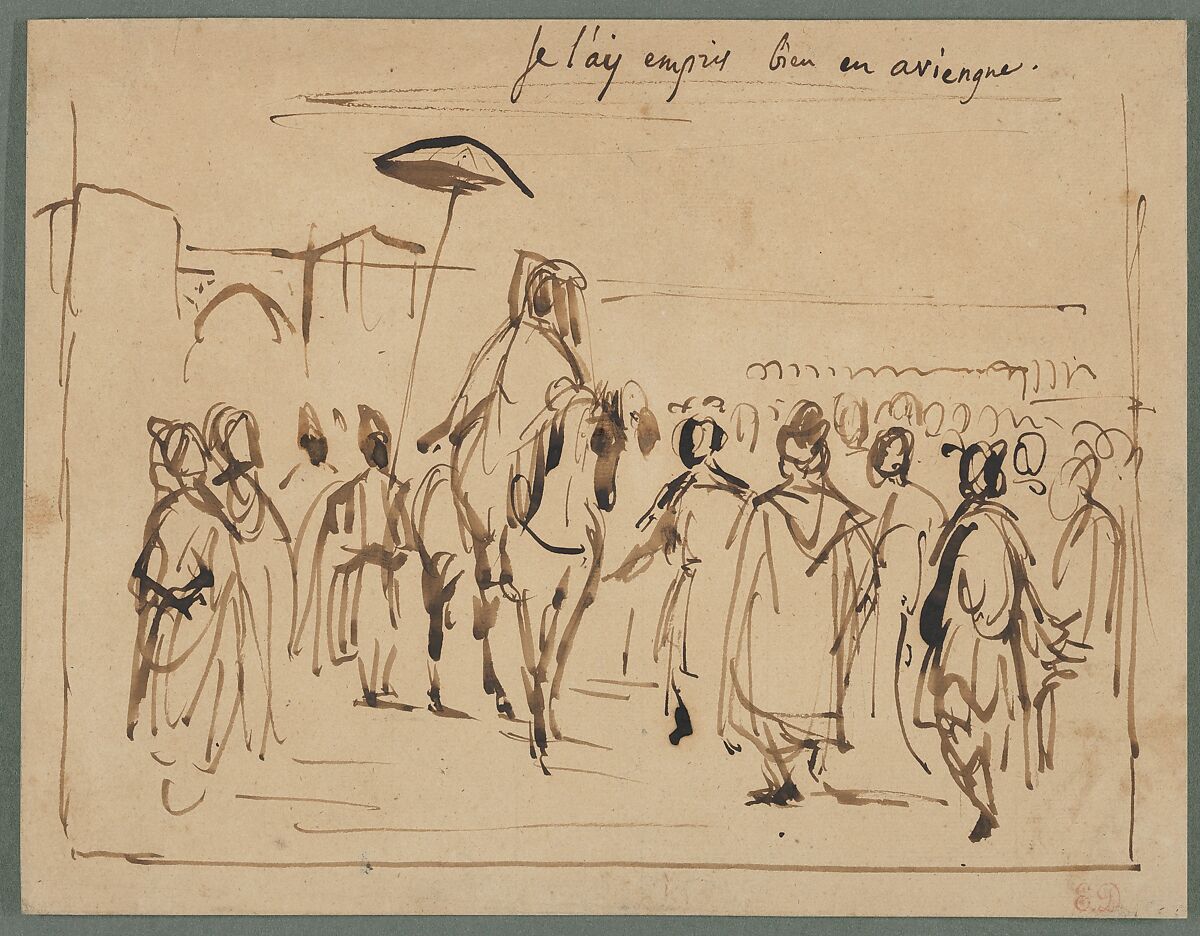 Je l'ay empris bien en aviengne.
E.D